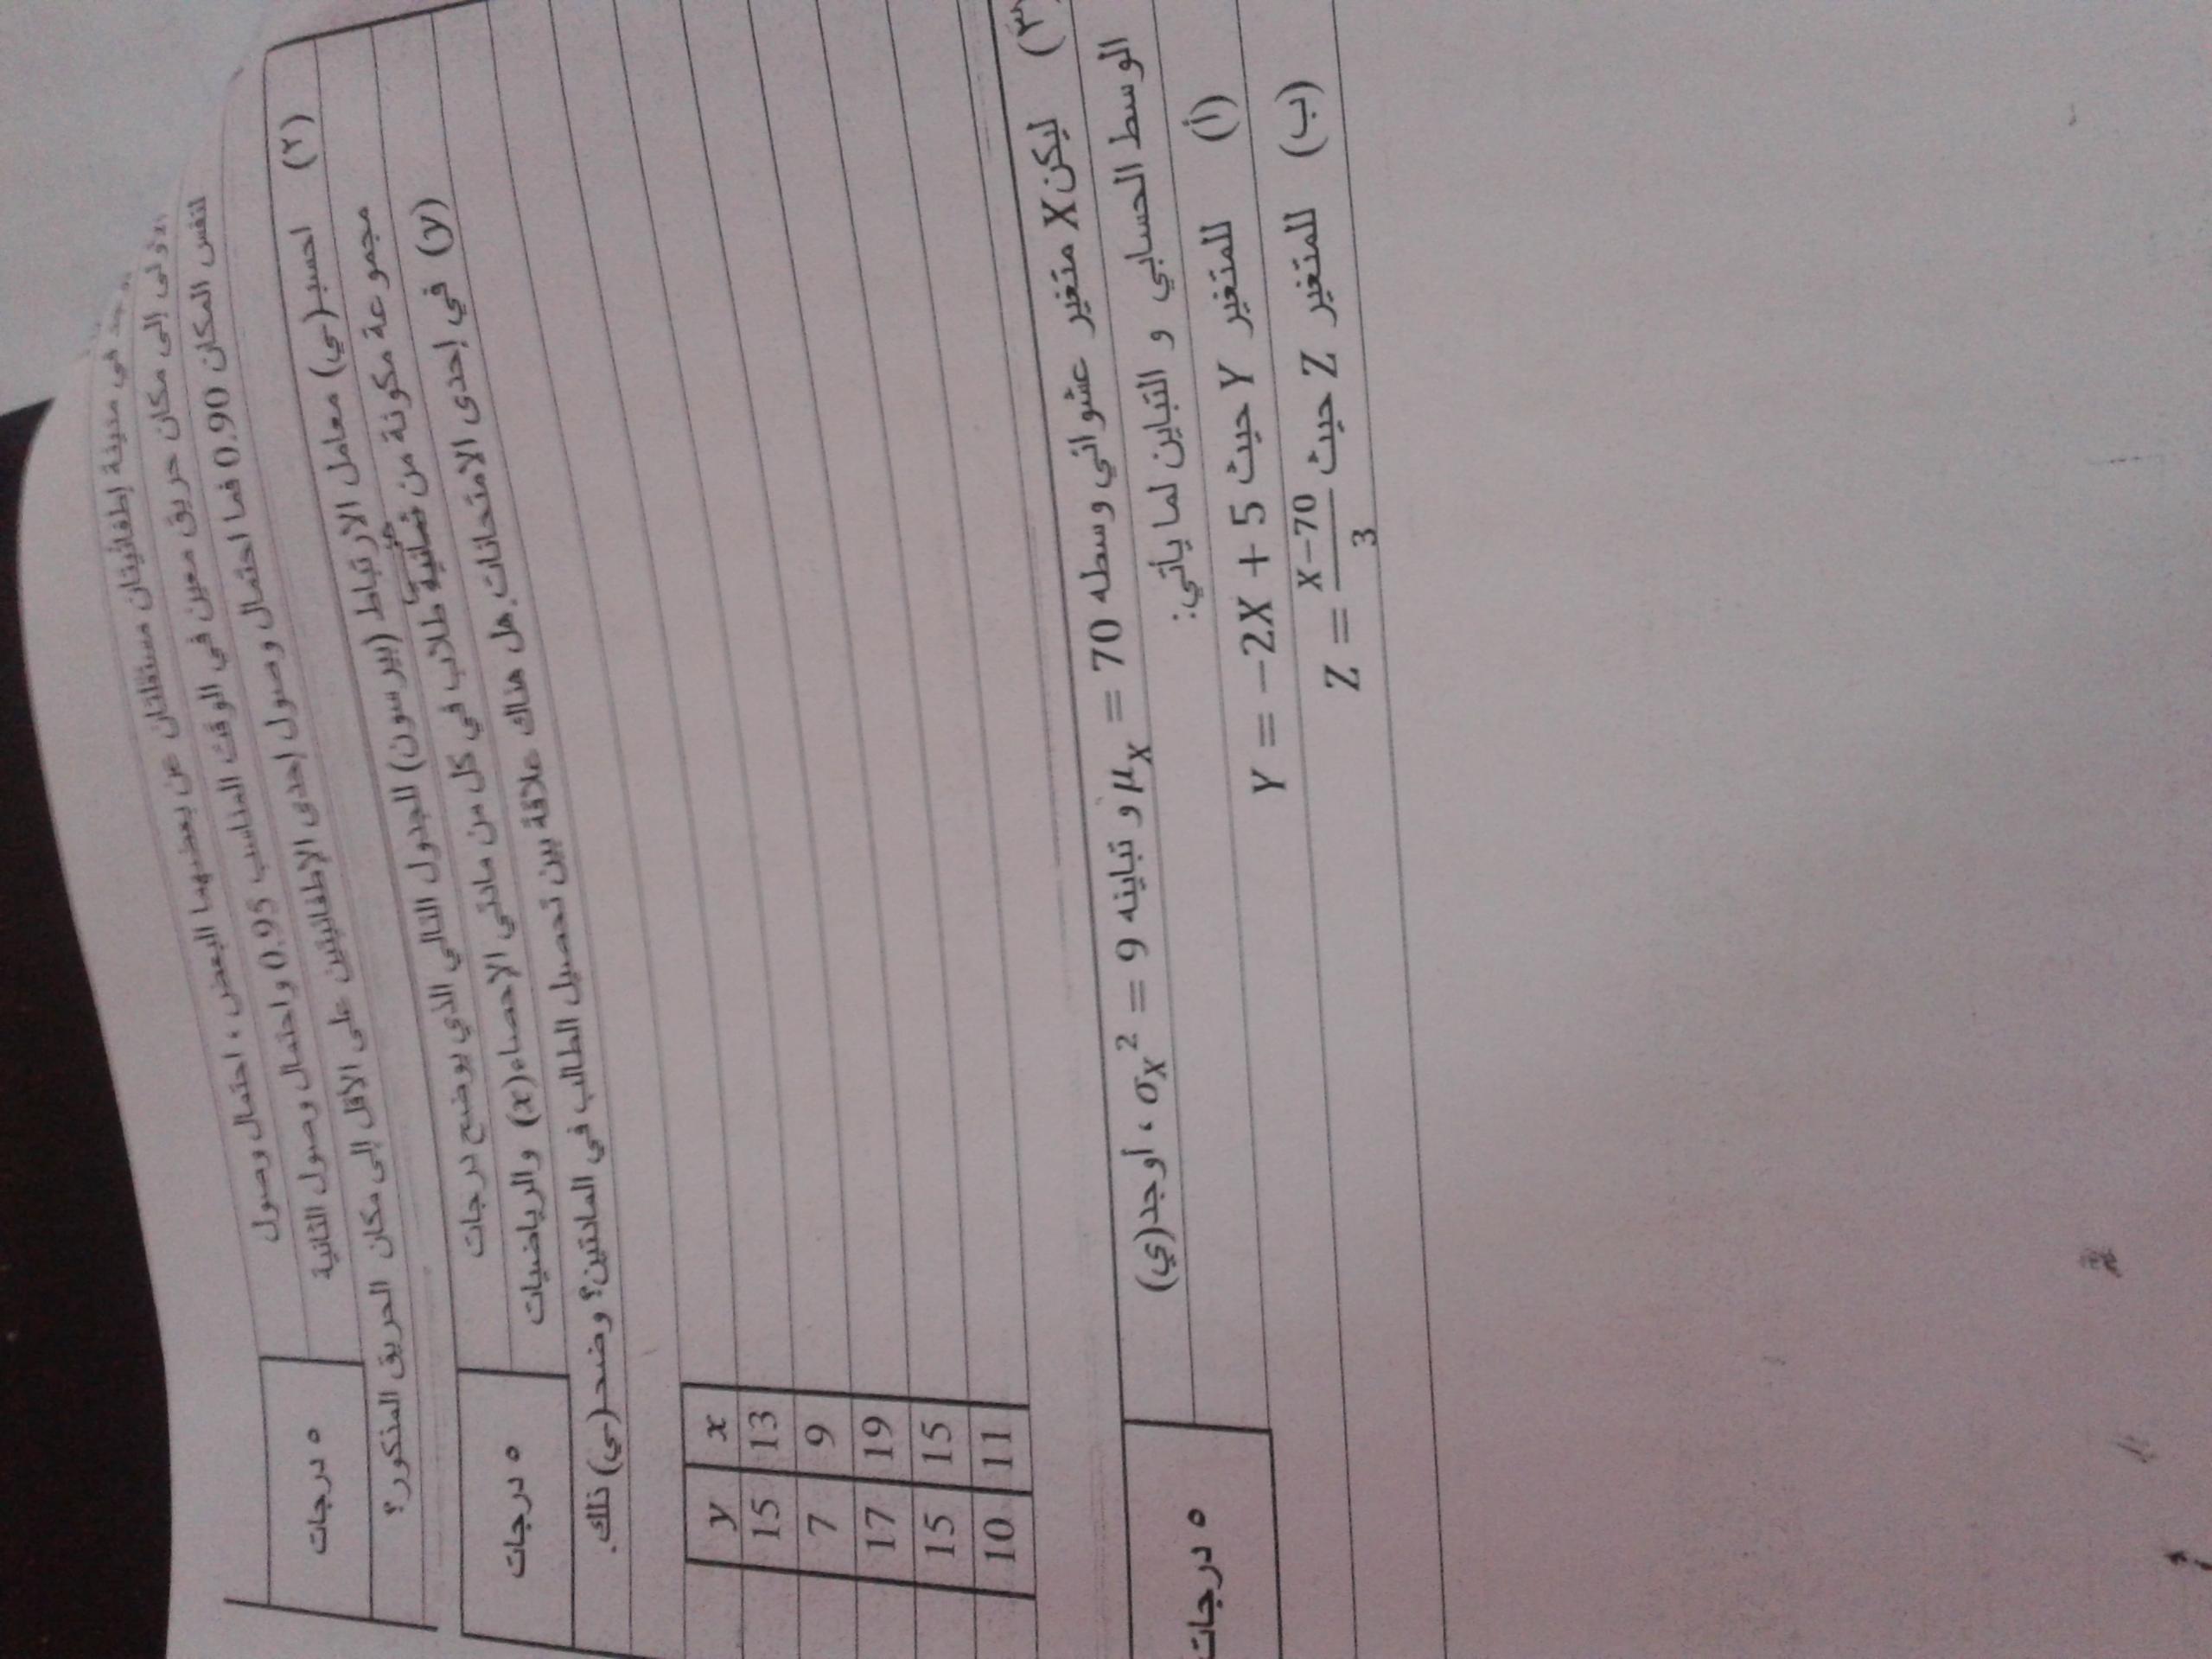 يوجد في مدينة إطفائيتان مستقلتان عن بعضهما البعض ، احتمال وصول
الأولى إلى مكان حريق معين في الوقت المناسب 0.95 واحتمال وصول الثانية
لنفس المكان 0.90 فما احتمال وصول إحدى الإطفائيتين على الأقل إلى مكان الحريق المذكور؟
٥ درجات
(٢) احسب(ي) معامل الارتباط (بيرسون) للجدول التالي الذي يوضح درجات
مجموعة مكونة من ثمانية طلاب في كل من مادتي الإحصاء(x) والرياضيات
(y) في إحدى الامتحانات. هل هناك علاقة بين تحصيل الطالب في المادتين؟ وضح(ي) ذلك.
٥ درجات
x y
13 15
9 7
19 17
15 15
11 10
(٣) ليكن X متغير عشوائي وسطه μX = 70 و تباينه σX² = 9 ، أوجد(ي)
الوسط الحسابي و التباين لما يأتي:
٥ درجات
(أ) للمتغير Y حيث Y = −2X + 5
(ب) للمتغير Z حيث Z = X−70 / 3